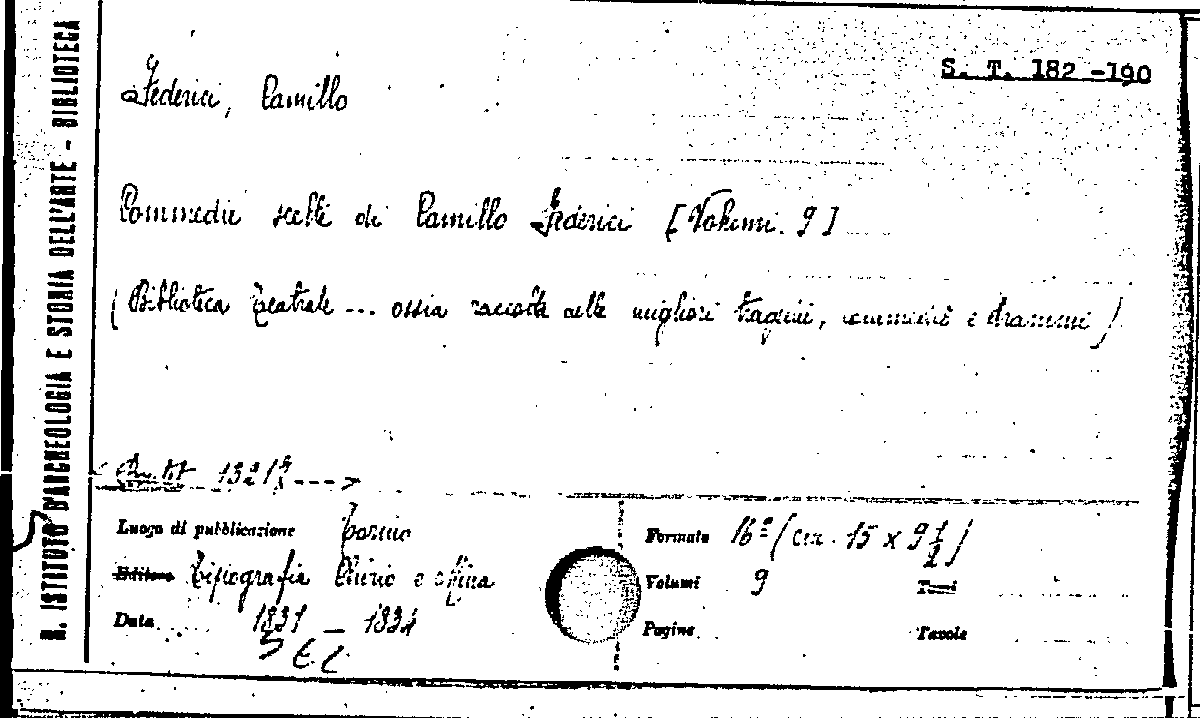 R. ISTITUTO D'ARCHEOLOGIA E STORIA DELL'ARTE - BIBLIOTECA
S. T. 182 -190
Federici, Camillo
Commedie scelte di Camillo Federici [Volumi. 9]
(Biblioteca teatrale ... ossia raccolta delle migliori tragedie, commedie e drammi)
Luogo di pubblicazione Torino
Editore Tipografia Chirio e Mina
Data 1831 - 1834
Formato 16° (cm. 15 x 9 1/2)
Volumi 9
Tomi
Pagine
Tavole